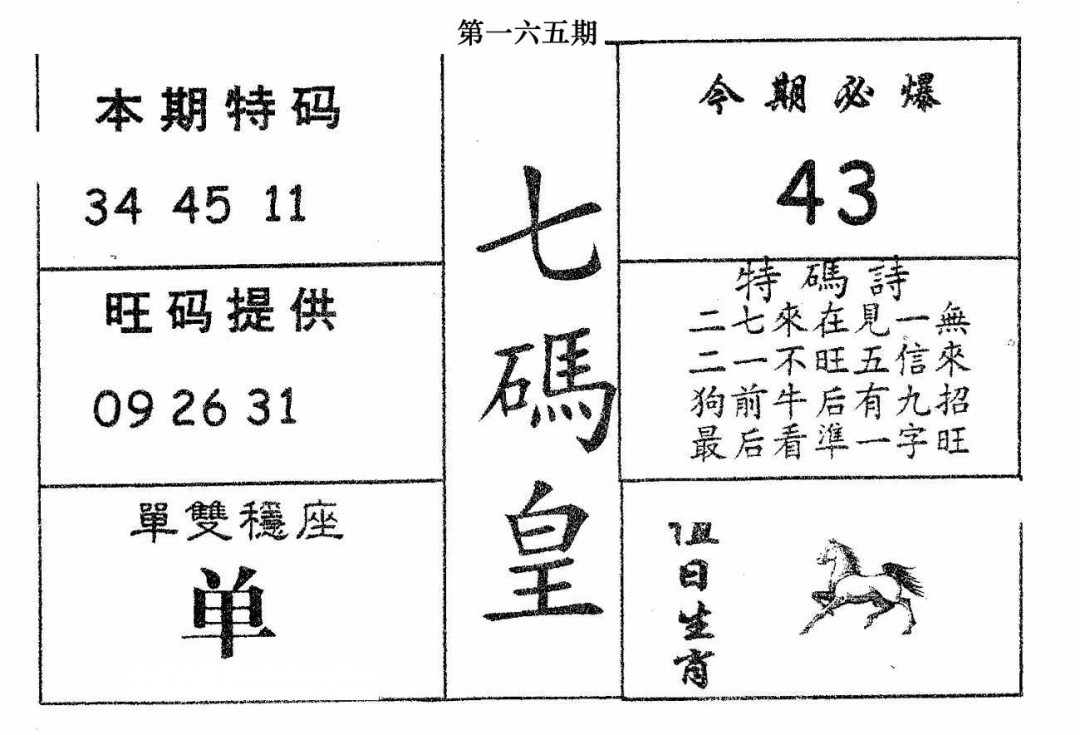 第一六五期
本期特码
34 45 11
旺码提供
09 26 31
單雙穩座
单
七碼皇
今期必爆
43
特碼詩
二七來在見一無
二一不旺五信來
狗前牛后有九招
最后看準一字旺
日生肖